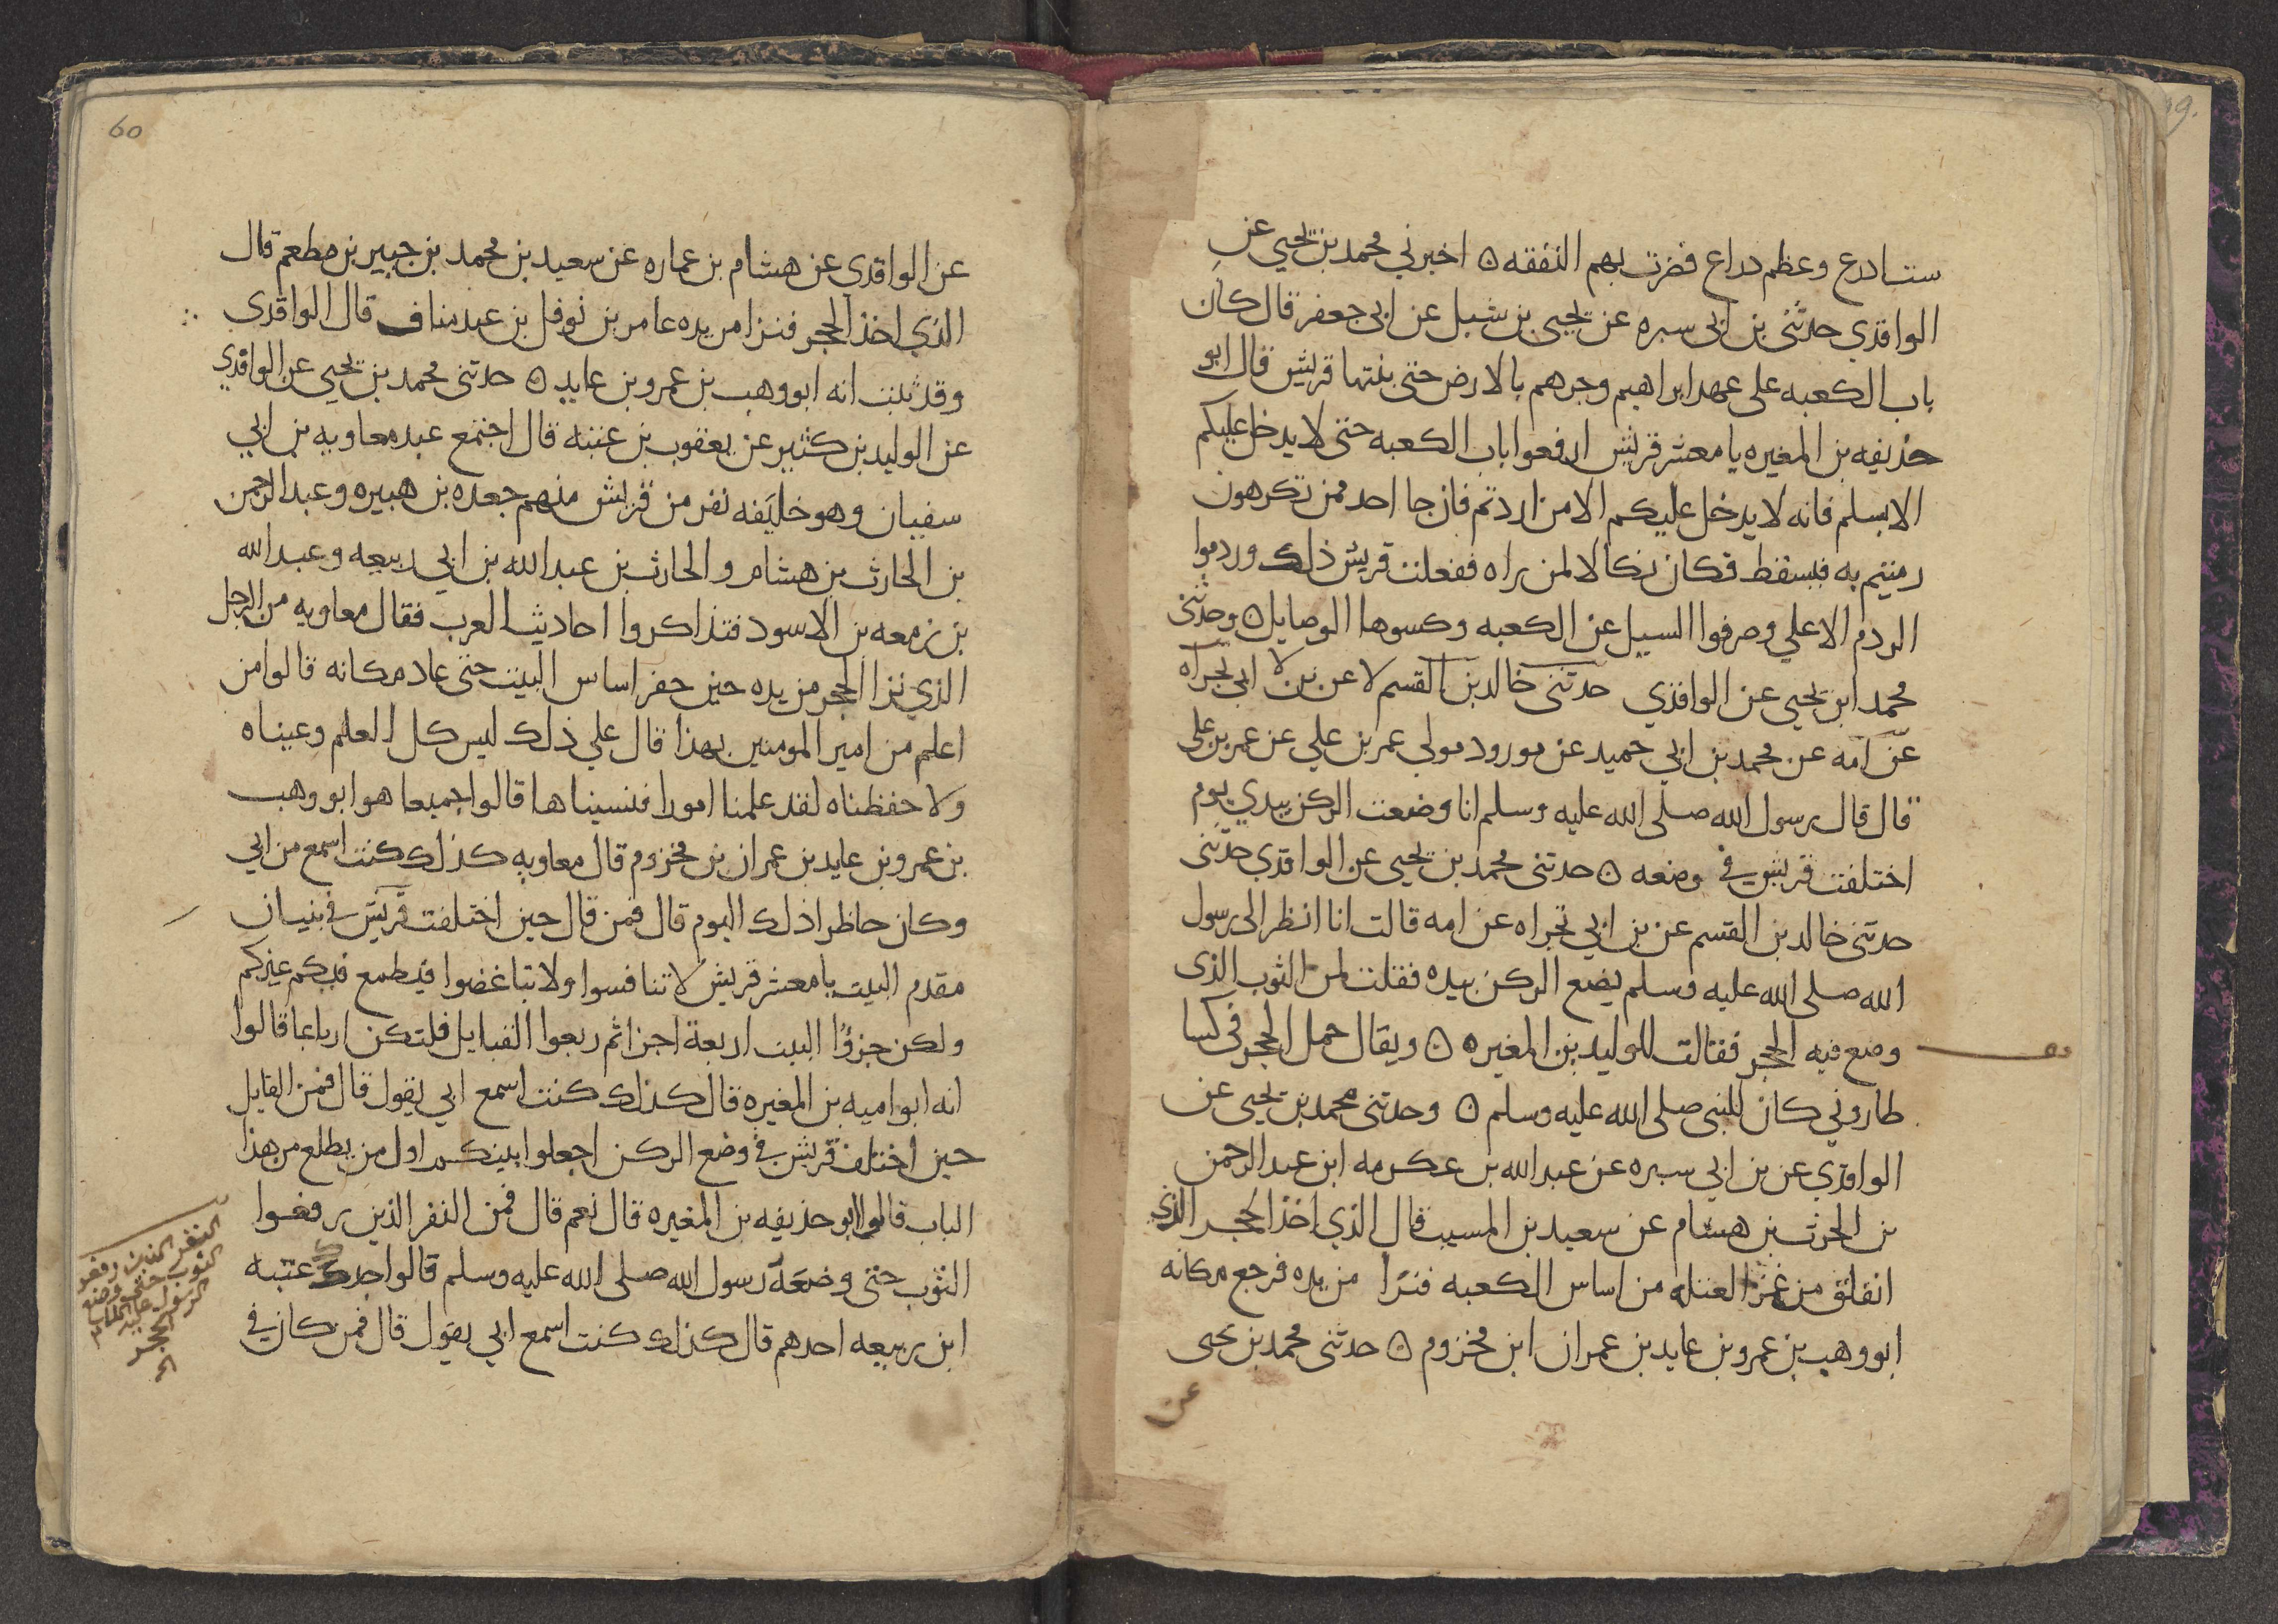 ستادرع وعظم دراع فضرت بهم النفقه ۞ اخبرني محمد بن يحيى عن
الواقدي حدثنى بن ابى سبره عن يحيى بن شبل عن ابى جعفر قال كان
باب الكعبه على عهد ابراهيم وجرهم بالارض حتى بنتها قريش قال ابو
حذيفه بن المغيره يا معشر قريش ارفعوا باب الكعبه حتى لا يدخل عليكم
الا بسلم فانه لا يدخل عليكم الا من اردتم فان جا احد ممن تكرهون
رميتم به فيسقط فكان نكالا لمن راه ففعلت قريش ذلك وردموا
الردم الاعلي وصرفوا السيل عن الكعبه وكسوها الوصايل ۞ وحدثنى
محمد ابن يحيى عن الواقدي حدثنى خالد بن القسم لا عن بن لا ابى تجراه
عن امه عن محمد بن ابي حميد عن مورود مولي عمر بن علي عن عمر بن على
قال قال رسول الله صلى الله عليه وسلم انا وضعت الركن بيدي يوم
اختلفت قريش في وضعه ۞ حدثنى محمد بن يحيى عن الواقدي حدثنى
حدثنى خالد بن القسم عن بن ابي تجراه عن امه قالت انا انظر الى رسول
الله صلى الله عليه وسلم يضع الركن بيده فقلت لمن الثوب الذى
وضع فيه الحجر فقالت للوليد بن المغيره ۞ ويقال حمل الحجر في كسا
طاروني كان للنبى صلى الله عليه وسلم ۞ وحدثنى محمد بن يحيى عن
الواقدي عن بن ابي سبره عن عبد الله بن عكرمه ابن عبد الرحمن
بن الحرث بن هشام عن سعيد بن المسيب قال الذي اخذ الحجر الذي
انفلق من غمز العتله من اساس الكعبه فنزا من يده فرجع مكانه
ابو وهب بن عمرو بن عايد بن عمران ابن مخزوم ۞ حدثنى محمد بن يحيى
عن
60
عن الواقدي عن هشام بن عماره عن سعيد بن محمد بن جبير بن مطعم قال
الذي اخذ الحجر فنزا من يده عامر بن نوفل بن عبد مناف قال الواقدى
وقد ثبت انه ابو وهب بن عمرو بن عايد ۞ حدثنى محمد بن يحيى عن الواقدي
عن الوليد بن كثير عن يعقوب بن عتبه قال اجتمع عبد معاويه بن ابي
سفيان وهو خليفه نفر من قريش منهم جعده بن هبيره وعبد الرحمن
بن الحارث بن هشام والحارث بن عبد الله بن ابي ربيعه وعبد الله
بن زمعه بن الاسود فتذاكروا احاديث العرب فقال معاويه من الرجل
الذي نزا الحجر من يده حين حفر اساس البيت حتى عاد مكانه قالوا من
اعلم من امير المومنين بهذا قال علي ذلك ليس كل العلم وعيناه
ولا حفظناه لقد علمنا امورا فنسيناها قالوا جميعا هو ابو وهب
بن عمرو بن عايد بن عمران بن مخزوم قال معاويه كذلك كنت اسمع من ابي
وكان حاظرا ذلك اليوم قال فمن قال حين اختلفت قريش في بنيان
مقدم البيت يا معشر قريش لا تنافسوا ولا تباغضوا فيطمع فيكم غيركم
ولكن جزؤا البيت اربعة اجزا ثم ربعوا القبايل فلتكن ارباعا قالوا
انه ابو اميه بن المغيره قال كذلك كنت اسمع ابي يقول قال فمن القايل
حين اختلفت قريش في وضع الركن اجعلوا بينكم اول من يطلع من هذا
الباب قالوا ابو حذيفه بن المغيره قال نعم قال فمن النفر الذين رفعوا
الثوب حتى وضعه رسول الله صلى الله عليه وسلم قالوا جدك عتبه
ابن ربيعه احدهم قال كذلك كنت اسمع ابي يقول قال فمن كان في
النفر الذين رفعو
الثوب حتى وضع
الرسول عليه السلام
الحجر